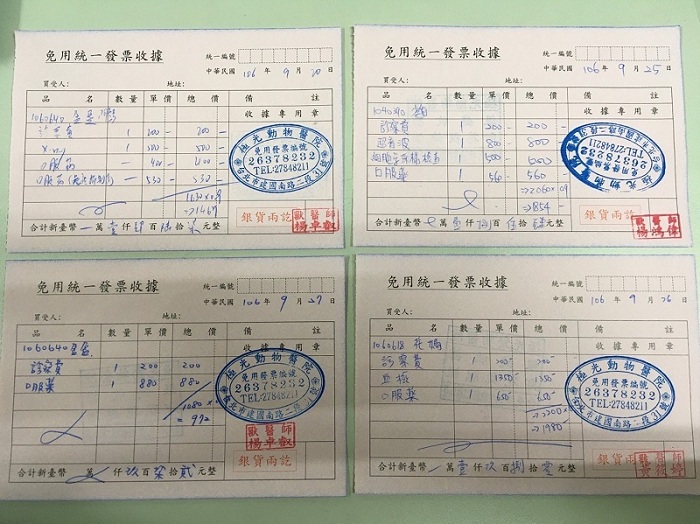 免用統一發票收據
統一編號
中華民國 106 年 9 月 20 日
買受人: 地址:
品名 數量 單價 總價 備註
收據專用章
1060640
1 200- 200-
X-ray 1 500- 500-
口服藥 1 400-
口服藥 1 530- 550-
極光動物醫院
免用發票編號
26378232
TEL:27848211
台北市建國南路二段
銀貨兩訖
獸醫師
楊卓叡
合計新臺幣 萬壹仟 百陸拾 元整
免用統一發票收據
統一編號
中華民國 106 年 9 月 25 日
買受人: 地址:
品名 數量 單價 總價 備註
收據專用章
診察費 1 200- 200-
超音波 1 800- 800-
1 500 500
口服藥 1 560 560
⇒2060×0.9
⇒1854-
極光動物醫院
免用發票編號
26378232
TEL:27848211
台北市建國南路二段
銀貨兩訖
獸醫師
楊鴻偉
合計新臺幣 萬壹仟捌百伍拾 元整
免用統一發票收據
統一編號
中華民國 106 年 9 月 27 日
買受人: 地址:
品名 數量 單價 總價 備註
收據專用章
1060640
診察費 1 200 200-
口服藥 1 880 880-
1080×0.9
=972
極光動物醫院
免用發票編號
26378232
TEL:27848211
台北市建國南路二段
銀貨兩訖
獸醫師
楊卓叡
合計新臺幣 萬 仟玖百柒拾貳元整
免用統一發票收據
統一編號
中華民國 106 年 9 月 26 日
買受人: 地址:
品名 數量 單價 總價 備註
收據專用章
1060618
診察費 1 200- 200-
血檢 1 1350- 1350-
口服藥 1 650 650-
⇒2200×0.9
⇒1980-
極光動物醫院
免用發票編號
26378232
TEL:27848211
台北市建國南路二段
銀貨兩訖
合計新臺幣 萬壹仟玖百捌拾零元整